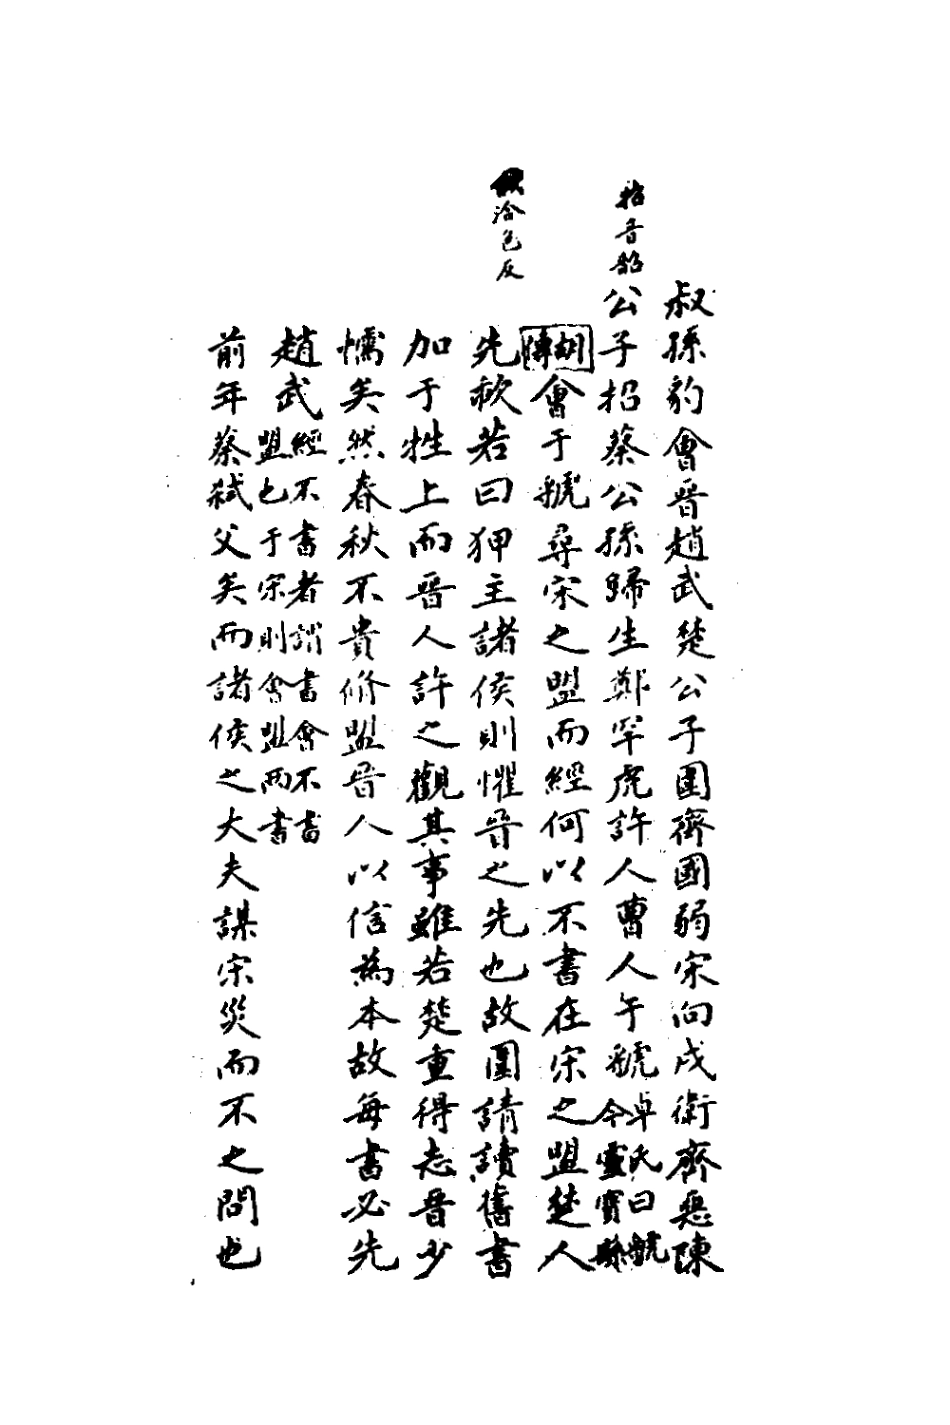 叔孫豹會晉趙武楚公子圍齊國弱宋向戌衛齊惡陳
招音韶
公子招蔡公孫歸生鄭罕虎許人曹人于虢
卓氏曰虢
今靈寶縣
胡傳
會于虢尋宋之盟而經何以不書在宋之盟楚人
洽色反
先歃若曰狎主諸侯則懼晉之先也故圍請讀舊書
加于牲上而晉人許之觀其事雖若楚重得志晉少
懦矣然春秋不貴修盟晉人以信為本故每書必先
趙武
經不書者謂書會不書
盟也于宋則會盟兩書
前年蔡弒父矣而諸侯之大夫謀宋災而不之問也